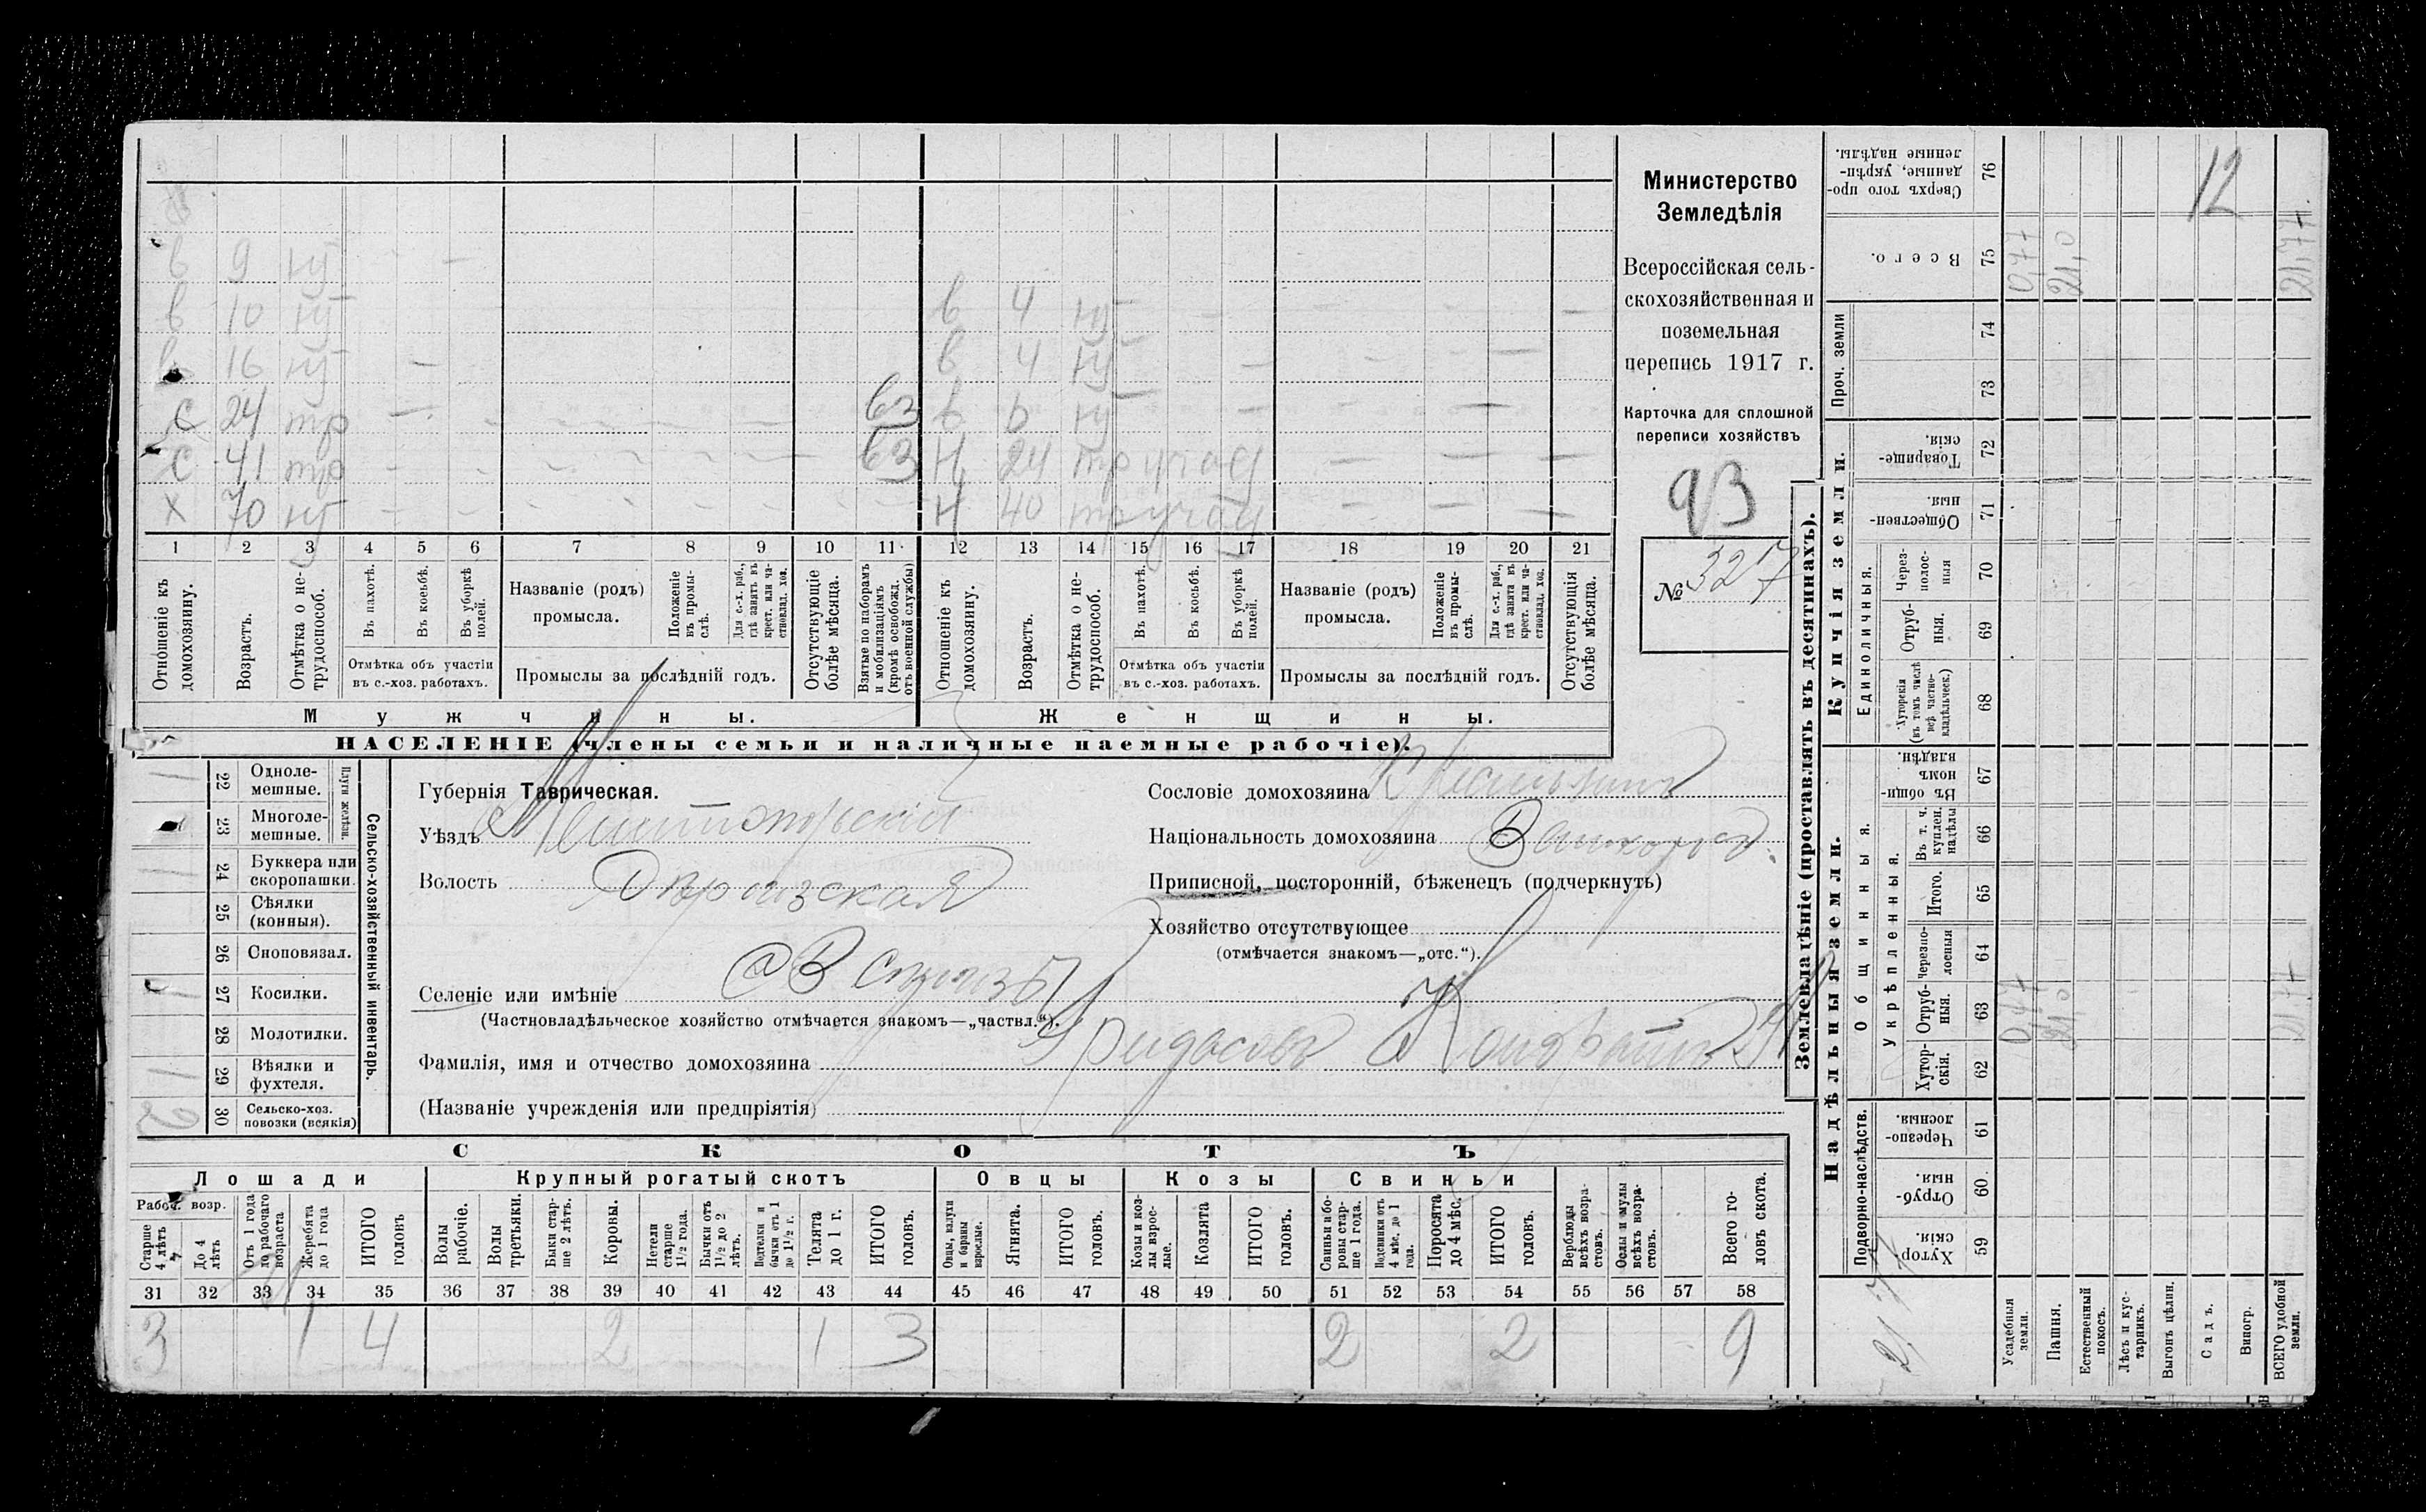 в 9 н/т —
в 10 н/т в 4 н/т — — — — —
в 16 н/т — в 4 н/т — — —
с 24 тр — вз в н/т — —
с 41 тр — вз н 24 тр — — —
х 70 н/т — н 40 тр — — —
1 2 3 4 5 6 7 8 9 10 11 12 13 14 15 16 17 18 19 20 21
Отношеніе къ домохозяину.
Возрастъ.
Отмѣтка о не-
трудоспособ.
Въ пахотѣ.
Въ косьбѣ.
Въ уборкѣ
полей.
Отмѣтка объ участіи
въ с.-хоз. работахъ.
Названіе (родъ)
промысла.
Положеніе
въ промы-
слѣ.
Для с.-х. раб.,
гдѣ занятъ въ
крест. или ча-
стновлад. хоз.
Промыслы за послѣдній годъ.
Отсутствующіе
болѣе мѣсяца.
Взятые по наборамъ
и мобилизаціямъ
(кромѣ освобожд.
отъ военной службы)
Отношеніе къ
домохозяину.
Возрастъ.
Отмѣтка о не-
трудоспособ.
Въ пахотѣ.
Въ косьбѣ.
Въ уборкѣ
полей.
Отмѣтка объ участіи
въ с.-хоз. работахъ.
Названіе (родъ)
промысла.
Положеніе
въ промы-
слѣ.
Для с.-х. раб.,
гдѣ занята въ
крест. или ча-
стновлад. хоз.
Промыслы за послѣдній годъ.
Отсутствующія
болѣе мѣсяца.
Мужчины.
Женщины.
НАСЕЛЕНІЕ (члены семьи и наличные наемные рабочіе).
Министерство
Земледѣлія
Всероссійская сель-
скохозяйственная и
поземельная
перепись 1917 г.
Карточка для сплошной
переписи хозяйствъ
93
№ 327
22 Одноле-
мешные.
23 Многоле-
мешные.
Плуги желѣзн.
24 Буккера или
скоропашки.
25 Сѣялки
(конныя).
26 Сноповязал.
27 Косилки.
28 Молотилки.
29 Вѣялки и
фухтеля.
30 Сельско-хоз.
повозки (всякія)
Сельско-хозяйственный инвентарь.
1
1
1
1
2
Губернія Таврическая.
Уѣздъ Мелитопольскій
Волость
Селеніе или имѣніе
(Частновладѣльческое хозяйство отмѣчается знакомъ—„частвл.“).
Фамилія, имя и отчество домохозяина Кондратій
(Названіе учрежденія или предпріятія)
Сословіе домохозяина Крестьянинъ
Національность домохозяина
Приписной, посторонній, бѣженецъ (подчеркнуть)
Хозяйство отсутствующее
(отмѣчается знакомъ—„отс.“).
СКОТЪ
Лошади
Рабоч. возр.
Старше
4 лѣтъ
До 4
лѣтъ
Отъ 1 года
до рабочаго
возраста
Жеребята
до 1 года
ИТОГО
головъ
Крупный рогатый скотъ
Волы
рабочіе.
Волы
третьяки.
Быки стар-
ше 2 лѣтъ.
Коровы.
Нетели
старше
1½ года.
Бычки отъ
1½ до 2
лѣтъ.
Подтелки и
бычки отъ 1
до 1½ г.
Телята
до 1 г.
ИТОГО
головъ.
Овцы
Овцы, валухи
и бараны
взрослые.
Ягнята.
ИТОГО
головъ.
Козы
Козы и коз-
лы взрос-
лые.
Козлята
ИТОГО
головъ.
Свиньи
Свиньи и бо-
ровы стар-
ше 1 года.
Подсвинки отъ
4 мѣс. до 1
года.
Поросята
до 4 мѣс.
ИТОГО
головъ.
Верблюды
всѣхъ возра-
стовъ.
Ослы и мулы
всѣхъ возра-
стовъ.
Всего го-
ловъ скота.
31 32 33 34 35 36 37 38 39 40 41 42 43 44 45 46 47 48 49 50 51 52 53 54 55 56 57 58
3 1 4 2 1 3 2 2 9
Землевладѣніе (проставлять въ десятинахъ).
Надѣльныя земли.
Купчія земли.
Проч. земли
Подворно-наслѣдств.
Общинныя.
Укрѣпленныя.
Единоличныя.
Хутор-
скія. 59
Отруб-
ныя. 60.
Черезпо-
лосныя. 61
Хутор-
скія. 62
Отруб-
ныя. 63
Черезпо-
лосныя 64
Итого. 65
Въ т. ч.
куплен.
надѣлы 66
Въ общи-
номъ
владѣн. 67
Хуторскія
(въ томъ числѣ
всѣ частно-
владѣльческ.) 68
Отруб-
ныя. 69
Через-
полос-
ныя 70
Обществен-
ныя. 71
Товарище-
скія. 72
73
74
Всего. 75
Сверхъ того про-
данные, укрѣп-
ленные надѣлы. 76
Усадебныя
земли.
Пашня.
Естественный
покосъ.
Лѣсъ и кус-
тарникъ.
Выгонъ цѣлин.
Садъ.
Виногр.
ВСЕГО удобной
земли.
0,77
21,0
21,77
0,77
21,0
21,77
12